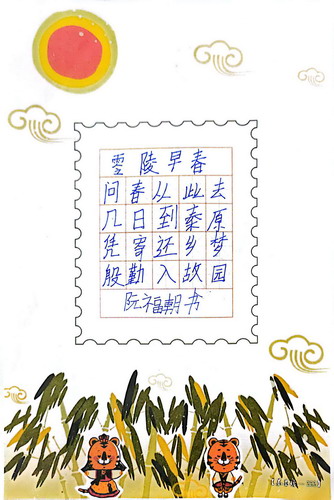 零陵早春
问春从此去
几日到秦原
凭寄还乡梦
殷勤入故园
阮福朝书